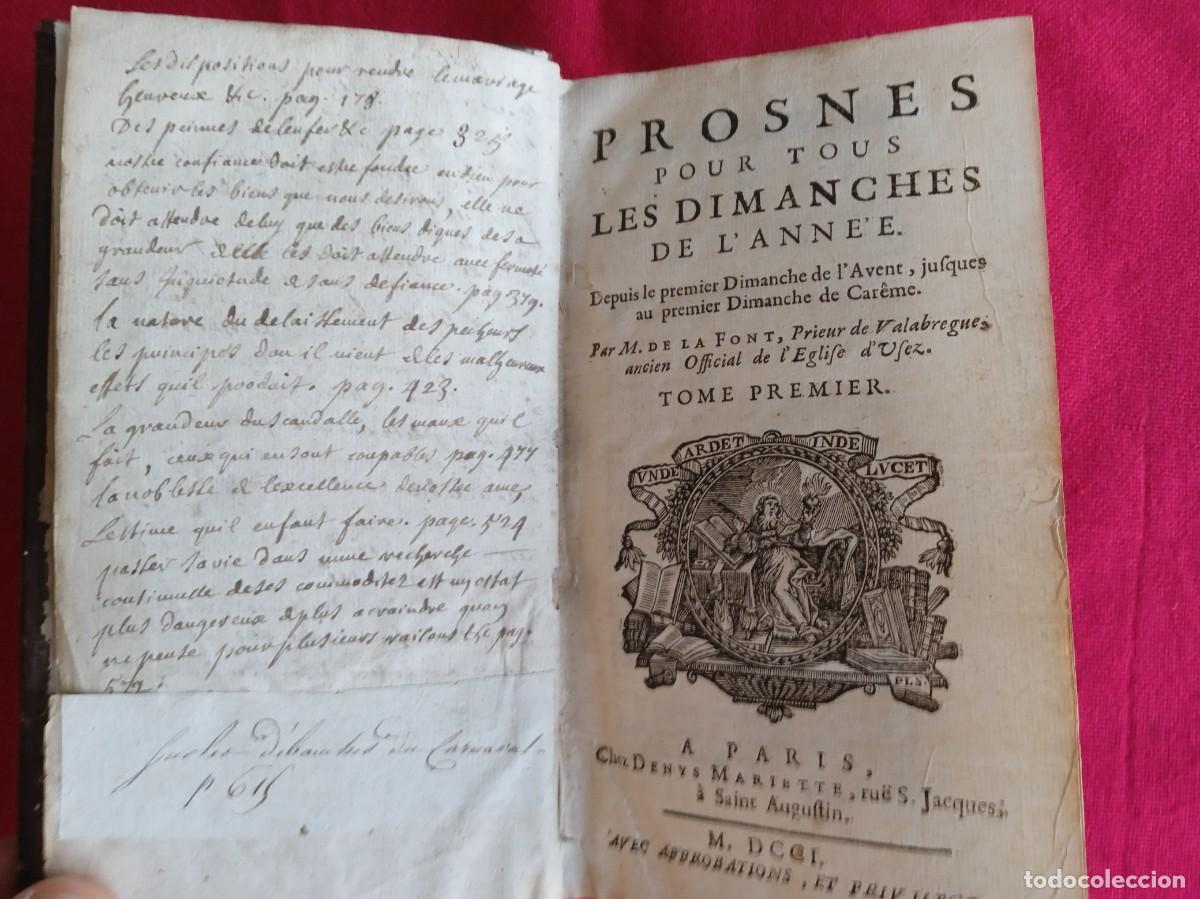 Les dispositions pour rendre lemarriage
heureux &c. pag. 178.
Des peinnes delenfer &c page 325
nostre confiance doit estre fondee en dieu pour
obtenir les biens que nous desirons, elle ne
doit attendre deluy que des biens dignes desa
grandeur & elle les doit attendre avec fermeté
sans inquietude & sans defiance. pag. 379.
la nature du delaissement des pecheurs
les principes dou il vient & les malheureux
effets quil prooduit. pag. 423.
La grandeur du scandalle, les maux quil
fait, ceux qui en sont coupables pag. 477
la noblesse & lexcellence denostre ame,
Lestime quil enfaut faire. page. 524
passer savie dans unne recherche
continuelle deses commoditez est un estat
plus dangereux & plus acraindre quon
ne pense pour plusieurs raisons &c pag.
572.
sur les débauches du Carnaval
p 615
PROSNES
POUR TOUS
LES DIMANCHES
DE L'ANNE'E.
Depuis le premier Dimanche de l'Avent, jusques
au premier Dimanche de Carême.
Par M. DE LA FONT, Prieur de Valabregue,
ancien Official de l'Eglise d'Usez.
TOME PREMIER.
VNDE ARDET INDE LVCET
PLS.
A PARIS,
Chez DENYS MARIETTE, ruë S. Jacques,
à Saint Augustin.
M. DCCI.
AVEC APPROBATIONS, ET PRIVILEGE
todocoleccion